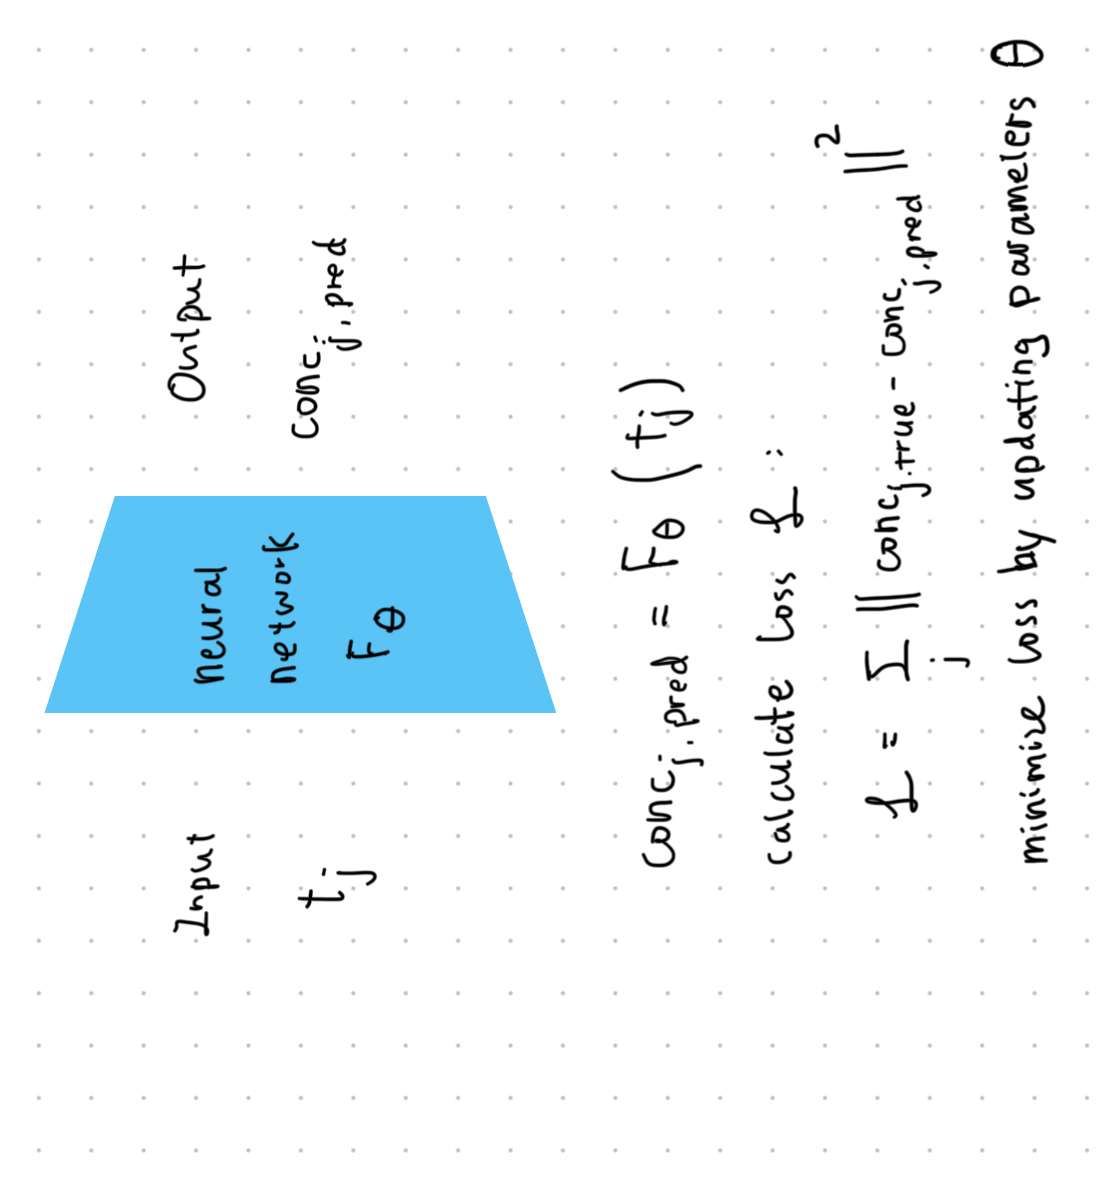 Input
neural
network
F_θ
Output
t_j
conc_j,pred
conc_j,pred = F_θ (t_j)
calculate loss ℒ :
ℒ = Σ_j ‖ conc_j,true - conc_j,pred ‖²
minimize loss by updating parameters θ